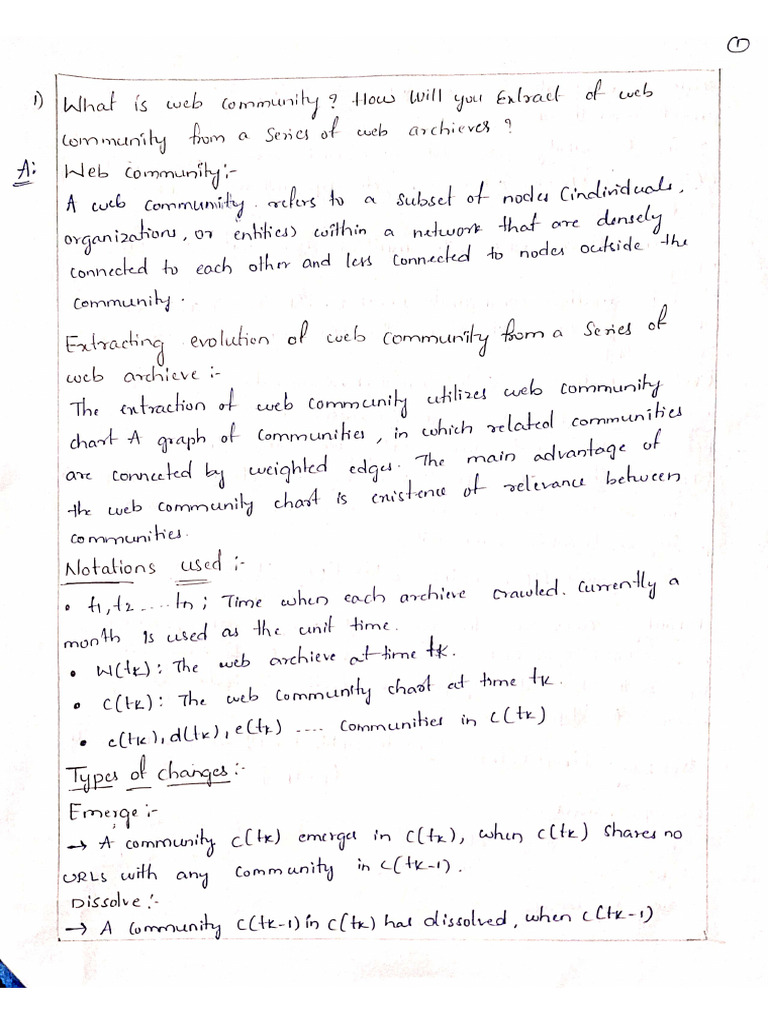 1
1) What is web community? How Will you Extract of web
community from a Series of web archieves?
A: Web community:-
A web community refers to a subset of nodes (individuals,
organizations, or entities) within a network that are densely
connected to each other and less connected to nodes outside the
community.
Extracting evolution of web community from a Series of
web archieve :-
The extraction of web community utilizes web community
chart A graph of Communities, in which related communities
are connected by weighted edges. The main advantage of
the web community chart is existence of relevance between
communities.
Notations used :-
• t1, t2 .... tn ; Time when each archieve crawled. Currently a
month is used as the unit time.
• W(tk) : The web archieve at time tk.
• C(tk) : The web community chart at time tk.
• c(tk), d(tk), e(tk) .... Communities in c(tk)
Types of changes:-
Emerge :-
→ A community c(tk) emerges in C(tk), when c(tk) shares no
URLs with any community in c(tk-1).
Dissolve :-
→ A community c(tk-1) in c(tk) has dissolved, when c(tk-1)